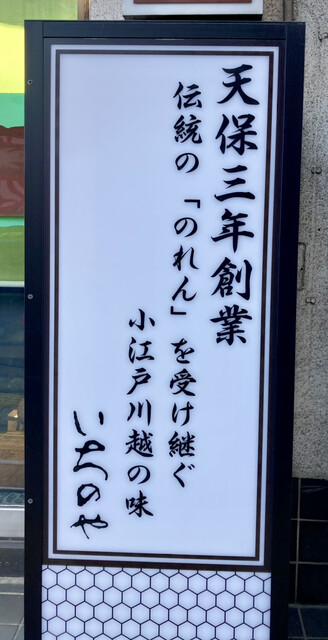 天保三年創業
伝統の「のれん」を受け継ぐ
小江戸川越の味
いちのや